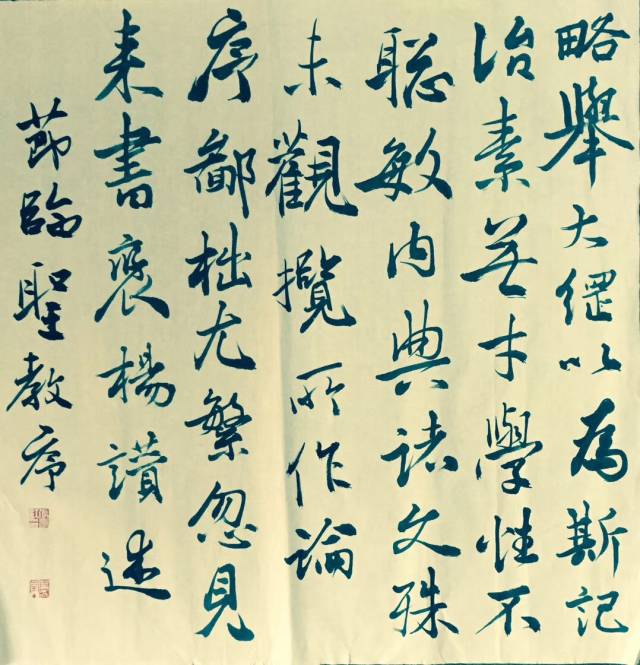 略舉大綱以為斯記
治素無才學性不
聰敏內典諸文殊
未觀攬所作論
序鄙拙尤繁忽見
来書褒楊讃述
節臨聖教序